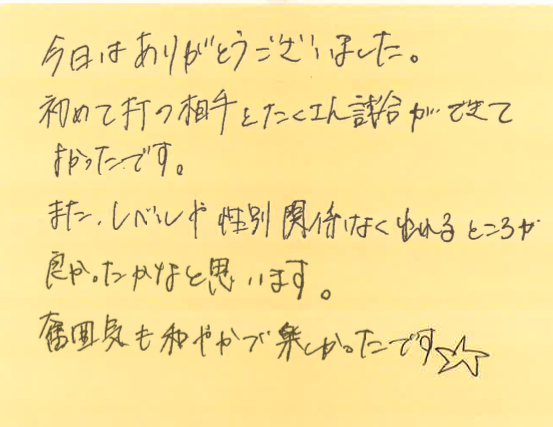 今日はありがとうございました。
初めて打つ相手とたくさん試合ができて
よかったです。
また、レベルや性別関係なく出れるところが
良かったかなと思います。
雰囲気も和やかで楽しかったです☆